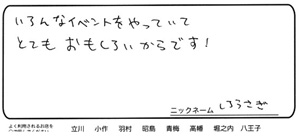 いろんなイベントをやっていて
とても おもしろいからです!
ニックネーム しろうさぎ
よく利用されるお店を
立川 小作 羽村 昭島 青梅 高幡 堀之内 八王子